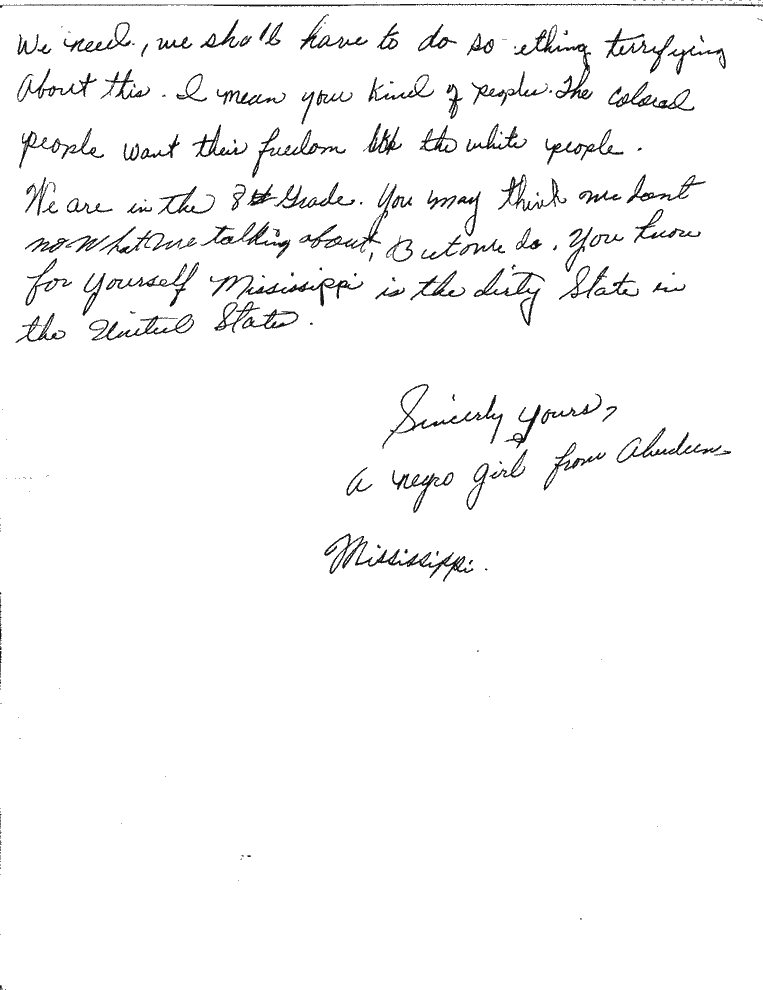 We need, we sha'll have to do so ething terrifying
About this. I mean your kind of people. The colored
people want their freedom the white people.
We are in the 8th Grade. You may think we don't
no what we talking about, But we do. You know
for yourself Mississippi is the dirty State in
the United States.
Sincerly yours,
a negro girl from Aberdeen
Mississippi.